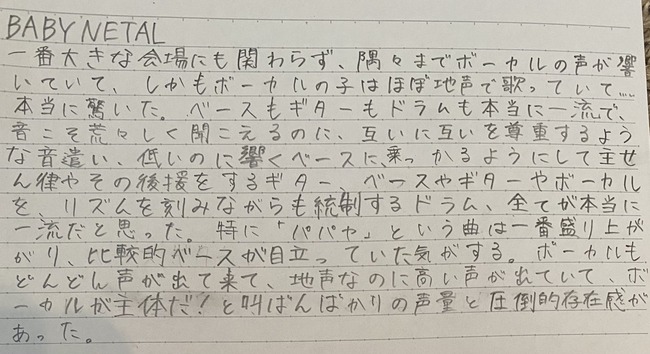 BABYNETAL
一番大きな会場にも関わらず、隅々までボーカルの声が響
いていて、しかもボーカルの子はほぼ地声で歌っていて……
本当に驚いた。ベースもギターもドラムも本当に一流で、
音こそ荒々しく聞こえるのに、互いに互いを尊重するよう
な音遣い、低いのに響くベースに、乗っかるようにして主せ
ん律やその後援をするギター、ベースやギターやボーカル
を、リズムを刻みながらも統制するドラム、全てが本当に
一流だと思った。特に「パパヤ」という曲は一番盛り上が
がり、比較的ベースが目立っていた気がする。ボーカルも
どんどん声が出て来て、地声なのに高い声が出ていて、ボ
ーカルが主体だ!と叫ばんばかりの声量と圧倒的存在感が
あった。